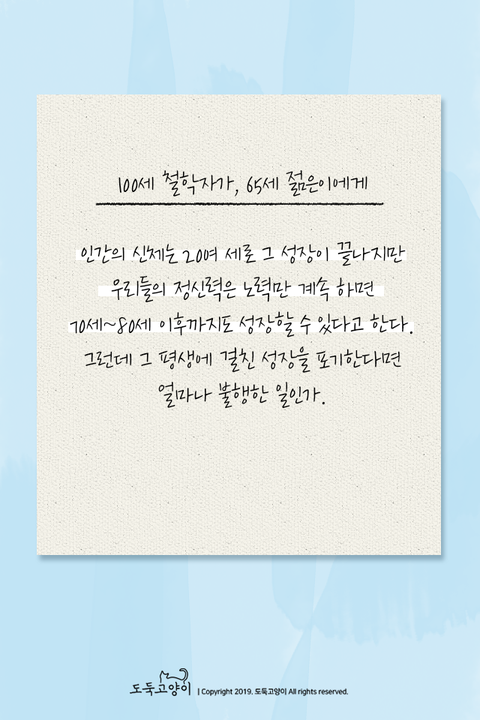 100세 철학자가, 65세 젊은이에게
인간의 신체는 20여 세로 그 성장이 끝나지만
우리들의 정신력은 노력만 계속 하면
70세~80세 이후까지도 성장할 수 있다고 한다.
그런데 그 평생에 걸친 성장을 포기한다면
얼마나 불행한 일인가.
도둑고양이 | Copyright 2019. 도둑고양이 All rights reserved.